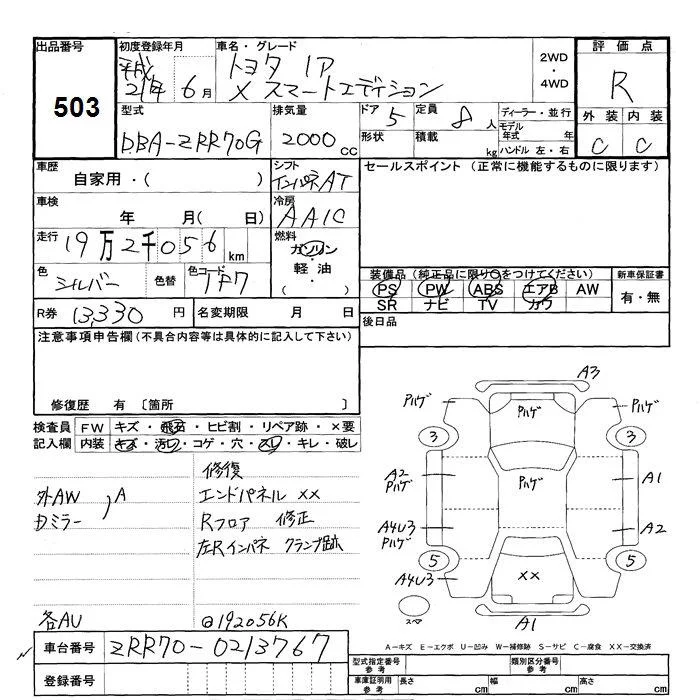 出品番号 503
初度登録年月 平成 21年 6月
車名・グレード トヨタ ｱｲｼｽ
X スマートエディション
2WD
・
4WD
評価点 R
外装 内装
C C
型式 DBA-ZRR70G
排気量 2000 cc
ドア 5
定員 8 人
形状
積載 kg
ディーラー・並行
モデル年式 年
ハンドル 左・右
車歴 自家用・( )
シフト インパネAT
セールスポイント (正常に機能するものに限ります)
車検 年 月( 日)
冷房 AAC
走行 19万2千056 km
燃料 ガソリン
軽油
( ・ )
色 シルバー 色替
色コード 1F7
装備品 (純正品に限り○をつけてください)
PS PW ABS エアB AW
SR ナビ TV カワ
新車保証書
有・無
R券 13,330 円
名変期限 月 日
後日品
注意事項申告欄 (不具合内容等は具体的に記入して下さい)
修復歴 有 〔箇所 〕
検査員記入欄
FW キズ・飛石・ヒビ割・リペア跡・×要
内装 キズ・汚レ・コゲ・穴・スレ・キレ・破レ
修復
外AW ,A エンドパネル ××
Dミラー Rフロア 修正
左Rインパネ クランプ跡
各AU @192056K
A3
Pハゲ Pハゲ Pハゲ
3 3
A2 Pハゲ Pハゲ A1
A4U3 Pハゲ A2
5 5
A4U3 ××
スマ A1
A-キズ E-エクボ U-凹み W-補修跡 S-サビ C-腐食 XX-交換済
車台番号 ZRR70-0213767
登録番号
型式指定番号 参考 類別区分番号 参考
車庫証明用 参考 長さ cm 幅 cm 高さ cm